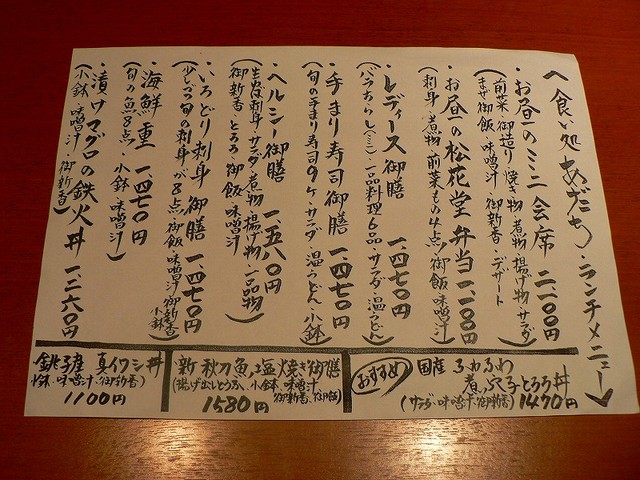 食い処 あづち・ランチメニュー
・お昼のミニ会席 二、一〇〇円
(前菜・御造り・焼き物・煮物・揚げ物・サラダ
まぜ御飯・味噌汁・御新香・デザート)
・お昼の松花堂弁当 二、一〇〇円
(刺身・煮物・前菜もの4点・御飯・味噌汁)
・レディース御膳 一、四七〇円
(バラちらし(ミニ)・一品料理6品・サラダ・温うどん)
・手まり寿司御膳 一、四七〇円
(旬の手まり寿司9ヶ・サラダ・温うどん・小鉢)
・ヘルシー御膳 一、五八〇円
(生ゆば刺身・サラダ・煮物・揚げ物・一品物
御新香・とろろ・御飯・味噌汁)
・いろどり刺身御膳 一、四七〇円
(少しづつ旬の刺身が8点・御飯・味噌汁・御新香・小鉢)
・海鮮重 一、四七〇円
(旬の魚8点・小鉢・味噌汁)
・漬けマグロの鉄火丼 一、二六〇円
(小鉢・味噌汁・御新香)
おすすめ 国産 ふわふわ
煮穴子とろろ丼
(サラダ・味噌汁・御新香) 1470円
新秋刀魚塩焼き御膳
(揚げ出しとうふ、小鉢、味噌汁
御新香、御飯)
1580円
銚子産 真イワシ丼
(小鉢・味噌汁・御新香)
1100円